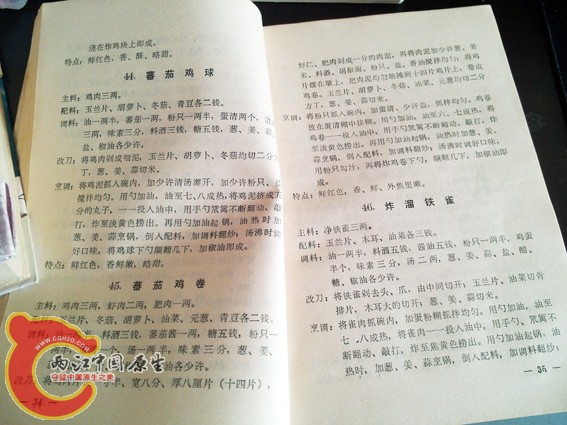 浇在炸鸡块上即成。
特点：鲜红色，香、酥、略甜。
44. 蕃茄鸡球
主料：鸡肉三两。
配料：玉兰片、胡萝卜、冬茹、青豆各二钱。
调料：油一两半，蕃茄一两，粉只一两半，蛋清两个，清
三两，味素三分，料酒三钱，糖五钱，葱、姜、蒜、
盐、椒油各少许。
改刀：将鸡肉剁成细泥，玉兰片、胡萝卜、冬茹均切二分
丁，葱、姜、蒜切米。
烹调：将鸡泥抓入碗内，加少许清汤澥开，加少许粉只、
搅拌均匀。用勺加油，油至七、八成热，将鸡泥挤成
分的丸子，一一投入油中，用手勺笊篱不断翻动、敲
打，炸至淡黄色捞出。再用勺加油起锅，油热时加
葱、姜、蒜烹锅，倒入配料，加调料翻炒，汤沸时调
好口味，将鸡球下勺颠翻几下，加椒油即成。
特点：鲜红色，香鲜嫩，略甜。
45. 蕃茄鸡卷
主料：鸡肉三两，虾肉二两，肥肉一两。
配料：玉兰片、冬茹、胡萝卜、油菜、元葱，青豆各二钱。
油一两半，味素三分，葱、姜、
油各少许。
改刀：将
半、宽八分、厚八厘片（十四片），
— 34 —
虾仁、肥肉剁成一分的肉泥，再将肉泥加少许葱、姜
米、料酒、胡椒面、粉只、盐、香油搅拌均匀，将鸡
片摆在墩上，把肉泥均匀地摊到十四片鸡片上，卷成
鸡卷。玉兰片、胡萝卜、冬茹、油菜、元葱均切二分
方丁，葱、姜、蒜切米。
烹调：将粉只抓入碗内，加蛋清、少许盐，抓拌均匀。鸡卷
放在蛋清糊中挂糊。用勺加油，油至六、七成热，将
鸡卷一一投入油中，用手勺笊篱不断翻动、敲打，炸
至淡黄色捞出。再用勺加油起锅，油热时加葱、姜、
蒜烹锅，倒入配料，加调料翻炒，汤沸时调好口味，
用粉只勾汁，再将炸鸡卷下勺，颠翻几下，加椒油即
成。
特点：鲜红色，香，鲜，外焦里嫩。
46. 炸溜铁雀
主料：净铁雀三两。
配料：玉兰片、木耳、油菜各三钱。
调料：油一两半，料酒五钱，酱油五钱，粉只一两半，鸡蛋
半个，味素三分，汤二两，葱、姜、蒜、盐、醋、
椒油各少许。
改刀：将铁雀剁去头、爪，由中间切开，玉兰片、油菜切骨
排片，木耳大的切开，葱、姜、蒜切米。
烹调：将雀肉抓碗内，加蛋粉糊抓拌均匀。用勺加油，油至
七、八成热，将雀肉一一投入油中，用手勺、笊篱不
断翻动、敲打，炸至焦黄色捞出。再用勺加油起锅，油
热时，加葱、姜、蒜烹锅，倒入配料，加调料翻炒，
— 35 —
WWW.CGHZD.COM
两江中国原生
守护中国原生之美